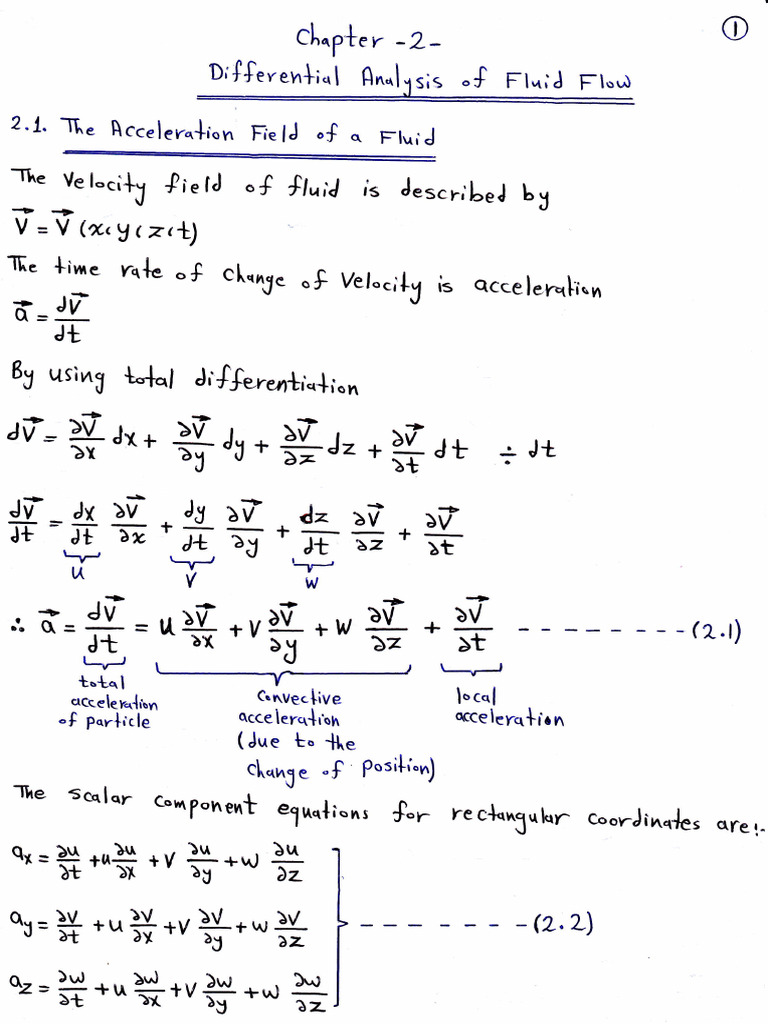 ①
Chapter -2-
Differential Analysis of Fluid Flow
2.1. The Acceleration Field of a Fluid
The Velocity field of fluid is described by
V⃗ = V⃗ (x، y، z، t)
The time rate of change of Velocity is acceleration
a⃗ = dV⃗/dt
By using total differentiation
dV⃗ = ∂V⃗/∂x dx + ∂V⃗/∂y dy + ∂V⃗/∂z dz + ∂V⃗/∂t dt ÷ dt
dV⃗/dt = dx/dt ∂V⃗/∂x + dy/dt ∂V⃗/∂y + dz/dt ∂V⃗/∂z + ∂V⃗/∂t
u V w
∴ a⃗ = dV⃗/dt = u ∂V⃗/∂x + V ∂V⃗/∂y + W ∂V⃗/∂z + ∂V⃗/∂t - - - - - - - - (2.1)
total acceleration of particle
Convective acceleration (due to the change of position)
local acceleration
The scalar component equations for rectangular coordinates are:-
ax = ∂u/∂t + u ∂u/∂x + V ∂u/∂y + w ∂u/∂z
ay = ∂V/∂t + u ∂V/∂x + V ∂V/∂y + w ∂V/∂z - - - - - - - (2.2)
az = ∂w/∂t + u ∂w/∂x + V ∂w/∂y + w ∂w/∂z